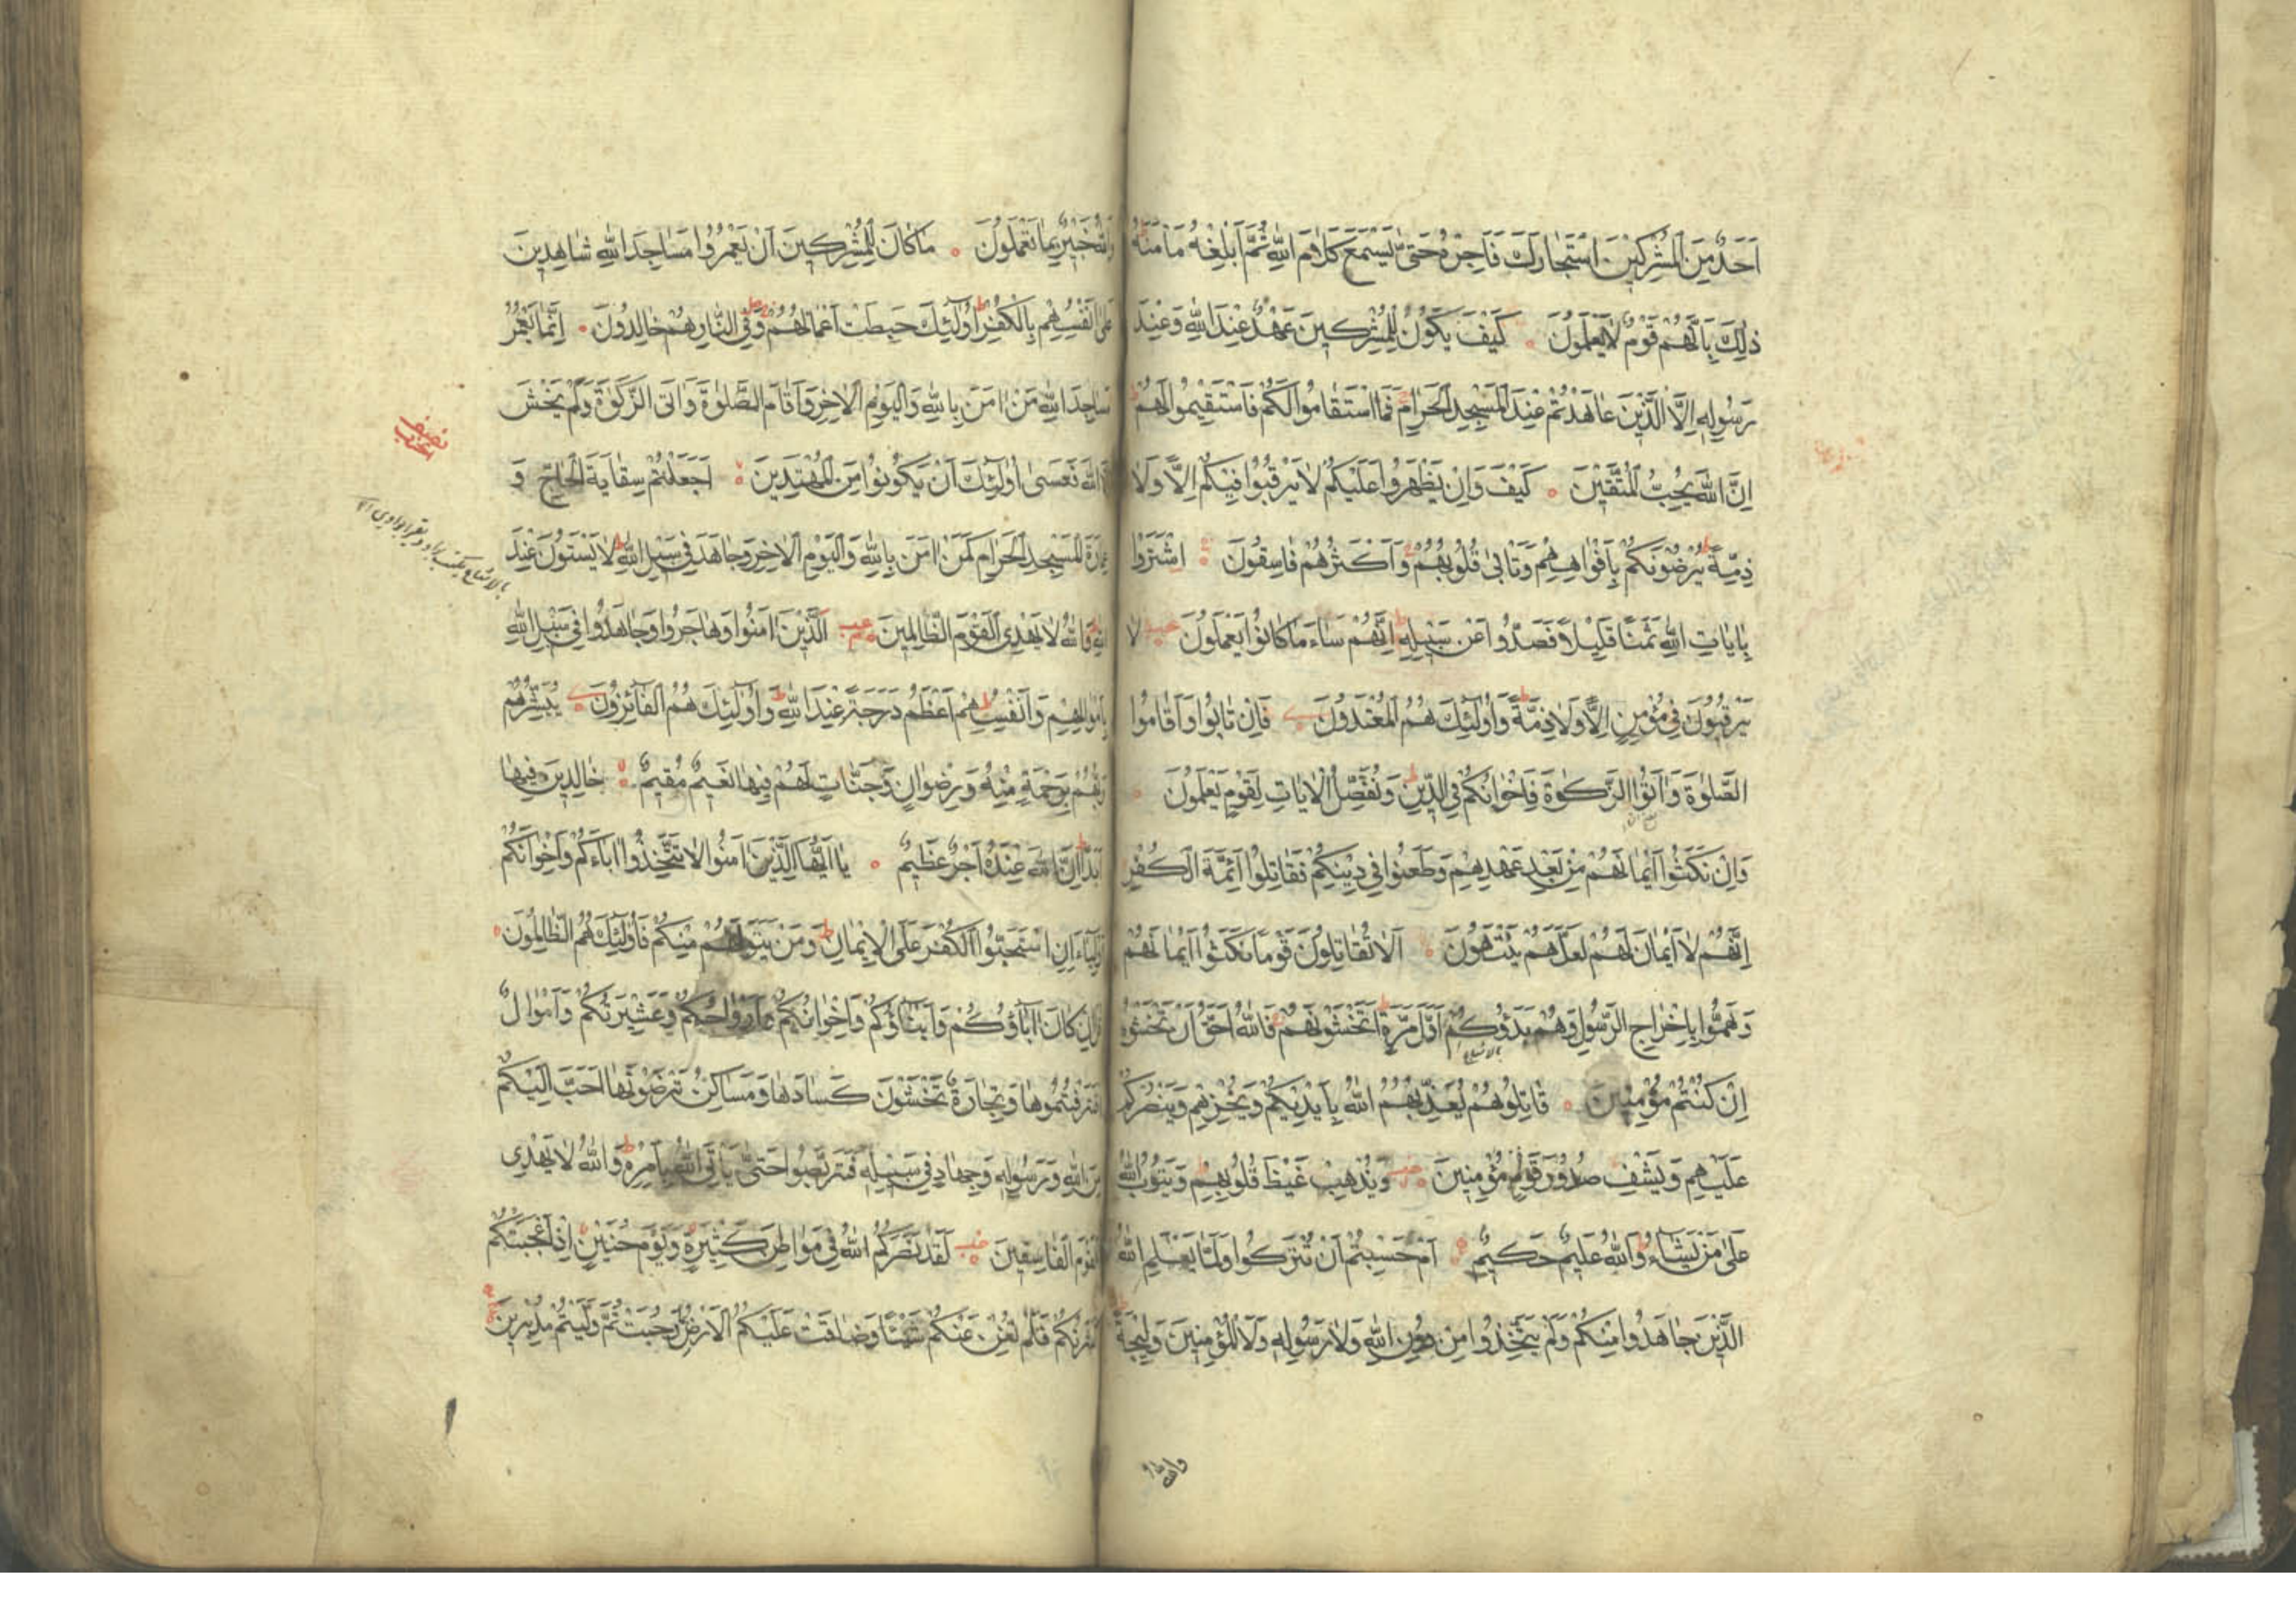 اَحَدٌ مِنَ الْمُشْرِكِينَ اسْتَجَارَكَ فَاَجِرْهُ حَتّٰى يَسْمَعَ كَلَامَ اللّٰهِ ثُمَّ اَبْلِغْهُ مَأْمَنَهُ
ذٰلِكَ بِاَنَّهُمْ قَوْمٌ لَا يَعْلَمُونَ ۝ كَيْفَ يَكُونُ لِلْمُشْرِكِينَ عَهْدٌ عِنْدَ اللّٰهِ وَعِنْدَ
رَسُولِهِ اِلَّا الَّذِينَ عَاهَدْتُمْ عِنْدَ الْمَسْجِدِ الْحَرَامِ فَمَا اسْتَقَامُوا لَكُمْ فَاسْتَقِيمُوا لَهُمْ
اِنَّ اللّٰهَ يُحِبُّ الْمُتَّقِينَ ۝ كَيْفَ وَاِنْ يَظْهَرُوا عَلَيْكُمْ لَا يَرْقُبُوا فِيكُمْ اِلًّا وَلَا
ذِمَّةً يُرْضُونَكُمْ بِاَفْوَاهِهِمْ وَتَاْبٰى قُلُوبُهُمْ وَاَكْثَرُهُمْ فَاسِقُونَ ۝ اشْتَرَوْا
بِاٰيَاتِ اللّٰهِ ثَمَنًا قَلِيلًا فَصَدُّوا عَنْ سَبِيلِهِ اِنَّهُمْ سَاءَ مَا كَانُوا يَعْمَلُونَ ۝ لَا
يَرْقُبُونَ فِي مُؤْمِنٍ اِلًّا وَلَا ذِمَّةً وَاُولٰئِكَ هُمُ الْمُعْتَدُونَ ۝ فَاِنْ تَابُوا وَاَقَامُوا
الصَّلٰوةَ وَاٰتَوُا الزَّكٰوةَ فَاِخْوَانُكُمْ فِي الدِّينِ وَنُفَصِّلُ الْاٰيَاتِ لِقَوْمٍ يَعْلَمُونَ ۝
وَاِنْ نَكَثُوا اَيْمَانَهُمْ مِنْ بَعْدِ عَهْدِهِمْ وَطَعَنُوا فِي دِينِكُمْ فَقَاتِلُوا اَئِمَّةَ الْكُفْرِ
اِنَّهُمْ لَا اَيْمَانَ لَهُمْ لَعَلَّهُمْ يَنْتَهُونَ ۝ اَلَا تُقَاتِلُونَ قَوْمًا نَكَثُوا اَيْمَانَهُمْ
وَهَمُّوا بِاِخْرَاجِ الرَّسُولِ وَهُمْ بَدَؤُكُمْ اَوَّلَ مَرَّةٍ اَتَخْشَوْنَهُمْ فَاللّٰهُ اَحَقُّ اَنْ تَخْشَوْهُ
اِنْ كُنْتُمْ مُؤْمِنِينَ ۝ قَاتِلُوهُمْ يُعَذِّبْهُمُ اللّٰهُ بِاَيْدِيكُمْ وَيُخْزِهِمْ وَيَنْصُرْكُمْ
عَلَيْهِمْ وَيَشْفِ صُدُورَ قَوْمٍ مُؤْمِنِينَ ۝ وَيُذْهِبْ غَيْظَ قُلُوبِهِمْ وَيَتُوبُ اللّٰهُ
عَلٰى مَنْ يَشَاءُ وَاللّٰهُ عَلِيمٌ حَكِيمٌ ۝ اَمْ حَسِبْتُمْ اَنْ تُتْرَكُوا وَلَمَّا يَعْلَمِ اللّٰهُ
الَّذِينَ جَاهَدُوا مِنْكُمْ وَلَمْ يَتَّخِذُوا مِنْ دُونِ اللّٰهِ وَلَا رَسُولِهِ وَلَا الْمُؤْمِنِينَ وَلِيجَةً
وَاللّٰهُ
وَاللّٰهُ خَبِيرٌ بِمَا تَعْمَلُونَ ۝ مَا كَانَ لِلْمُشْرِكِينَ اَنْ يَعْمُرُوا مَسَاجِدَ اللّٰهِ شَاهِدِينَ
عَلٰى اَنْفُسِهِمْ بِالْكُفْرِ اُولٰئِكَ حَبِطَتْ اَعْمَالُهُمْ وَفِي النَّارِ هُمْ خَالِدُونَ ۝ اِنَّمَا يَعْمُرُ
مَسَاجِدَ اللّٰهِ مَنْ اٰمَنَ بِاللّٰهِ وَالْيَوْمِ الْاٰخِرِ وَاَقَامَ الصَّلٰوةَ وَاٰتَى الزَّكٰوةَ وَلَمْ يَخْشَ
اِلَّا اللّٰهَ فَعَسٰى اُولٰئِكَ اَنْ يَكُونُوا مِنَ الْمُهْتَدِينَ ۝ اَجَعَلْتُمْ سِقَايَةَ الْحَاجِّ وَ
عِمَارَةَ الْمَسْجِدِ الْحَرَامِ كَمَنْ اٰمَنَ بِاللّٰهِ وَالْيَوْمِ الْاٰخِرِ وَجَاهَدَ فِي سَبِيلِ اللّٰهِ لَا يَسْتَوُونَ عِنْدَ
اللّٰهِ وَاللّٰهُ لَا يَهْدِي الْقَوْمَ الظَّالِمِينَ ۝ اَلَّذِينَ اٰمَنُوا وَهَاجَرُوا وَجَاهَدُوا فِي سَبِيلِ اللّٰهِ
بِاَمْوَالِهِمْ وَاَنْفُسِهِمْ اَعْظَمُ دَرَجَةً عِنْدَ اللّٰهِ وَاُولٰئِكَ هُمُ الْفَائِزُونَ ۝ يُبَشِّرُهُمْ
رَبُّهُمْ بِرَحْمَةٍ مِنْهُ وَرِضْوَانٍ وَجَنَّاتٍ لَهُمْ فِيهَا نَعِيمٌ مُقِيمٌ ۝ خَالِدِينَ فِيهَا
اَبَدًا اِنَّ اللّٰهَ عِنْدَهُ اَجْرٌ عَظِيمٌ ۝ يَا اَيُّهَا الَّذِينَ اٰمَنُوا لَا تَتَّخِذُوا اٰبَاءَكُمْ وَاِخْوَانَكُمْ
اَوْلِيَاءَ اِنِ اسْتَحَبُّوا الْكُفْرَ عَلَى الْاِيمَانِ وَمَنْ يَتَوَلَّهُمْ مِنْكُمْ فَاُولٰئِكَ هُمُ الظَّالِمُونَ ۝
قُلْ اِنْ كَانَ اٰبَاؤُكُمْ وَاَبْنَاؤُكُمْ وَاِخْوَانُكُمْ وَاَزْوَاجُكُمْ وَعَشِيرَتُكُمْ وَاَمْوَالٌ
اقْتَرَفْتُمُوهَا وَتِجَارَةٌ تَخْشَوْنَ كَسَادَهَا وَمَسَاكِنُ تَرْضَوْنَهَا اَحَبَّ اِلَيْكُمْ
مِنَ اللّٰهِ وَرَسُولِهِ وَجِهَادٍ فِي سَبِيلِهِ فَتَرَبَّصُوا حَتّٰى يَاْتِيَ اللّٰهُ بِاَمْرِهِ وَاللّٰهُ لَا يَهْدِي
الْقَوْمَ الْفَاسِقِينَ ۝ لَقَدْ نَصَرَكُمُ اللّٰهُ فِي مَوَاطِنَ كَثِيرَةٍ وَيَوْمَ حُنَيْنٍ اِذْ اَعْجَبَتْكُمْ
كَثْرَتُكُمْ فَلَمْ تُغْنِ عَنْكُمْ شَيْئًا وَضَاقَتْ عَلَيْكُمُ الْاَرْضُ بِمَا رَحُبَتْ ثُمَّ وَلَّيْتُمْ مُدْبِرِينَ
نصف
الحزب